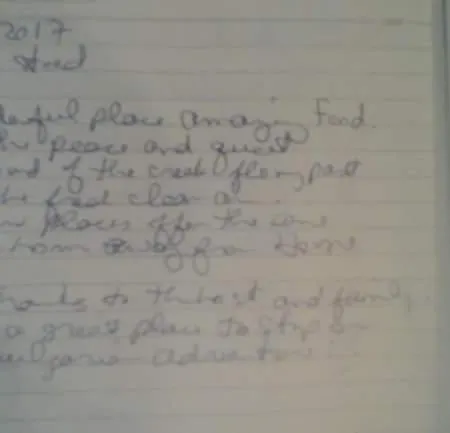 2017
place amazing Food.
peace and quiet
of the creek flowing past
the fresh clean air.
places offer the
home away from Home
to the host and family
a great place to stop on
adventure